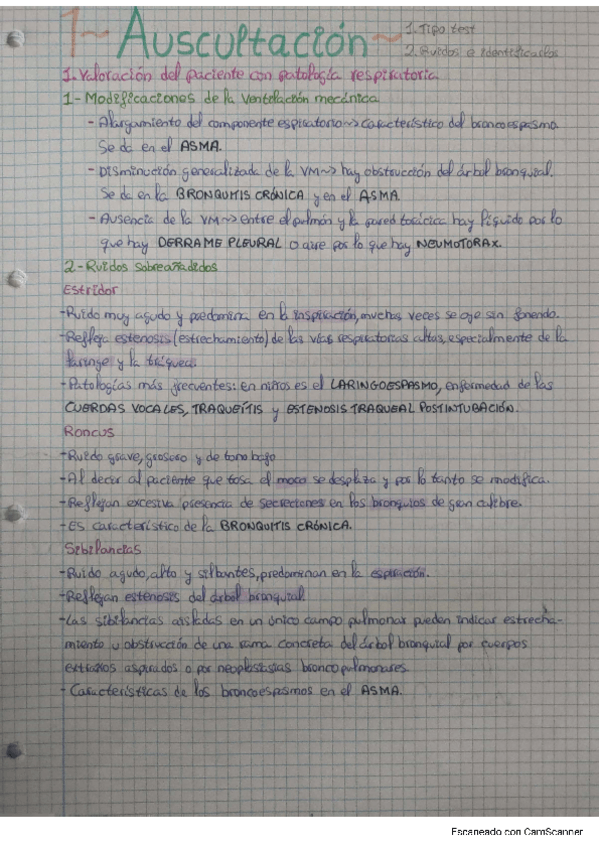 1~ Auscultación ~
1. Tipo test
2. Ruidos e identificarlos
1. Valoración del paciente con patología respiratoria
1- Modificaciones de la ventilación mecánica
- Alargamiento del componente espiratorio ~> característico del broncoespasmo
Se da en el ASMA.
- Disminución generalizada de la VM ~> hay obstrucción del árbol bronquial.
Se da en la BRONQUITIS CRÓNICA y en el ASMA.
- Ausencia de la VM ~> entre el pulmón y la pared torácica hay líquido por lo
que hay DERRAME PLEURAL o aire por lo que hay NEUMOTORAX.
2- Ruidos sobreañadidos
Estridor
- Ruido muy agudo y predomina en la inspiración, muchas veces se oye sin fonendo.
- Refleja estenosis (estrechamiento) de las vías respiratorias altas, especialmente de la
laringe y la tráquea
- Patologías más frecuentes: en niños es el LARINGOESPASMO, enfermedad de las
CUERDAS VOCALES, TRAQUEÍTIS y ESTENOSIS TRAQUEAL POSTINTUBACIÓN.
Roncus
- Ruido grave, grosero y de tono bajo
- Al decir al paciente que tosa el moco se desplaza y por lo tanto se modifica.
- Reflejan excesiva presencia de secreciones en los bronquios de gran calibre.
- Es característico de la BRONQUITIS CRÓNICA.
Sibilancias
- Ruido agudo, alto y silbantes, predominan en la espiración.
- Reflejan estenosis del árbol bronquial.
- Las sibilancias aisladas en un único campo pulmonar pueden indicar estrecha-
miento u obstrucción de una rama concreta del árbol bronquial por cuerpos
extraños aspirados o por neoplastasias broncopulmonares.
- Características de los broncoespasmos en el ASMA.
Escaneado con CamScanner